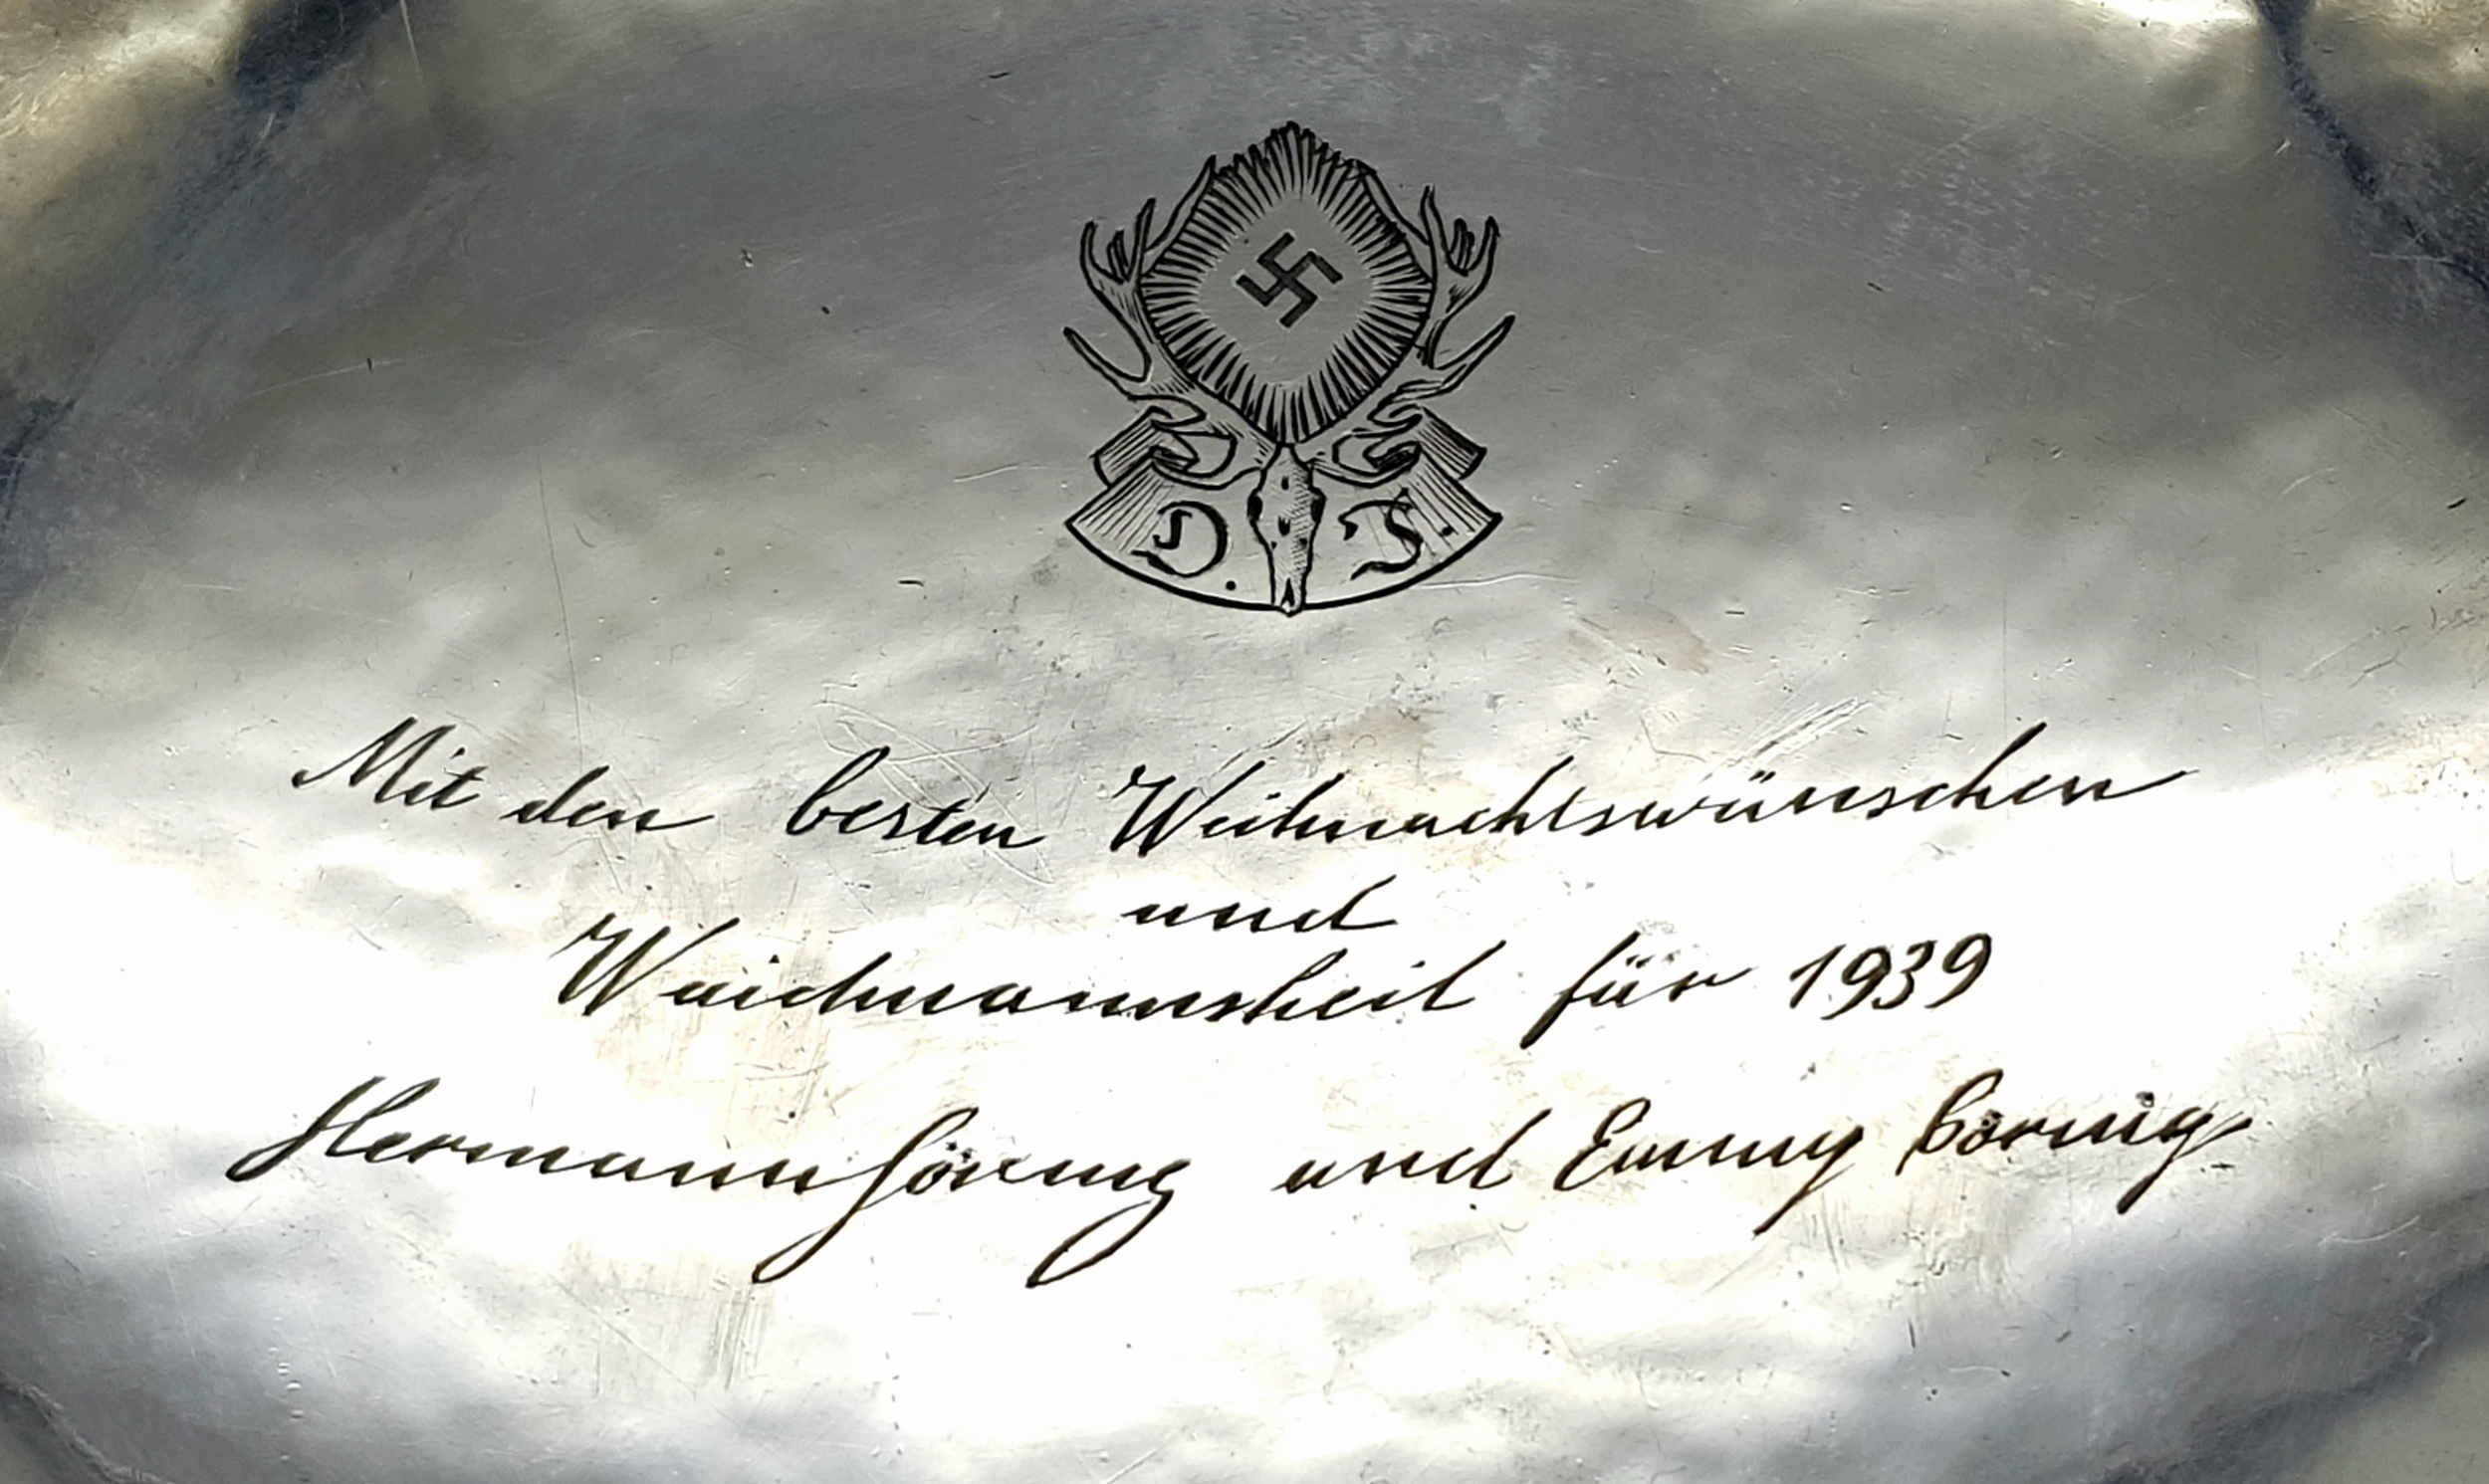 D. J.
Mit den besten Weihnachtswünschen
und
Waidmannsheil für 1939
Hermann Göring und Emmy Göring